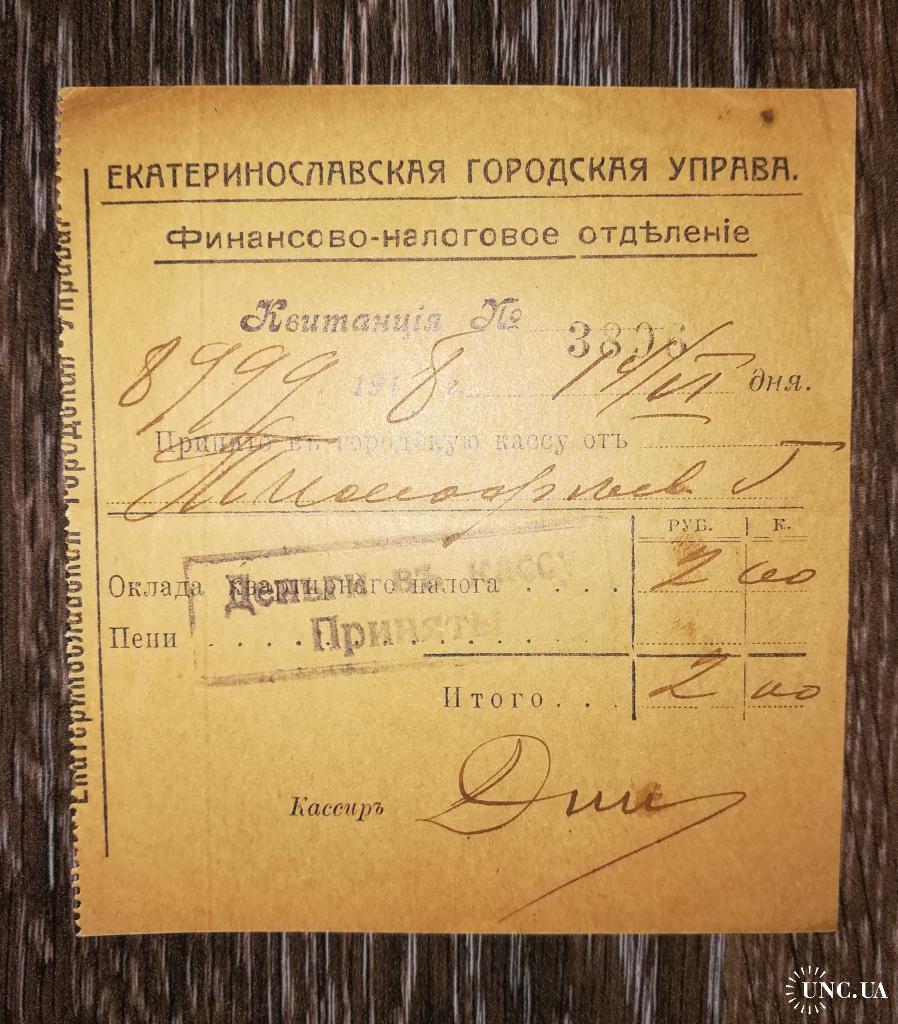 ЕКАТЕРИНОСЛАВСКАЯ ГОРОДСКАЯ УПРАВА.
Финансово-налоговое отдѣленіе
Квитанція № 3896
8999 1918 г. 14/VI дня.
Принято въ городскую кассу отъ
РУБ. К.
Оклада квартирнаго налога . . . . 2 00
Деньги въ кассу
Приняты
Пени
Итого . . . 2 00
Кассиръ
Екатеринославская Городская Управа.
UNC.UA